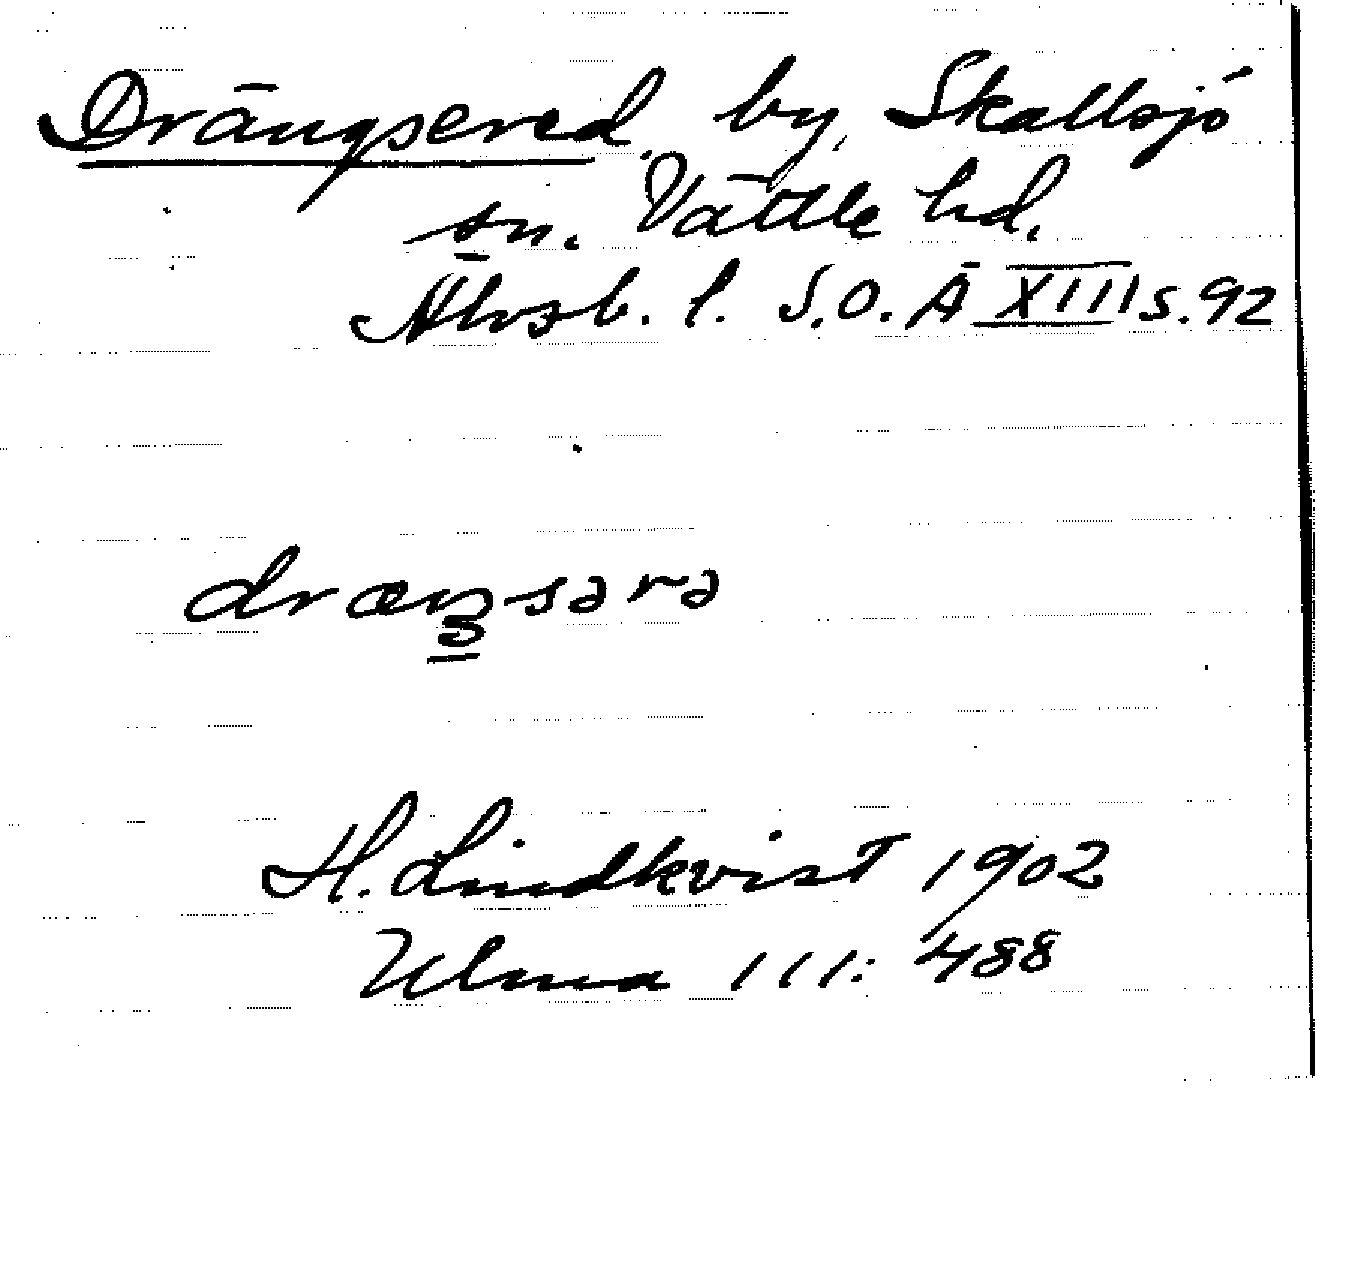 Drängsered by, Skallsjö
sn. Vättle hd.
Älvsb. l. S.O.Ä XIII s. 92
dræŋsərə
H. Lindkvist 1902
Ulma 111: 488